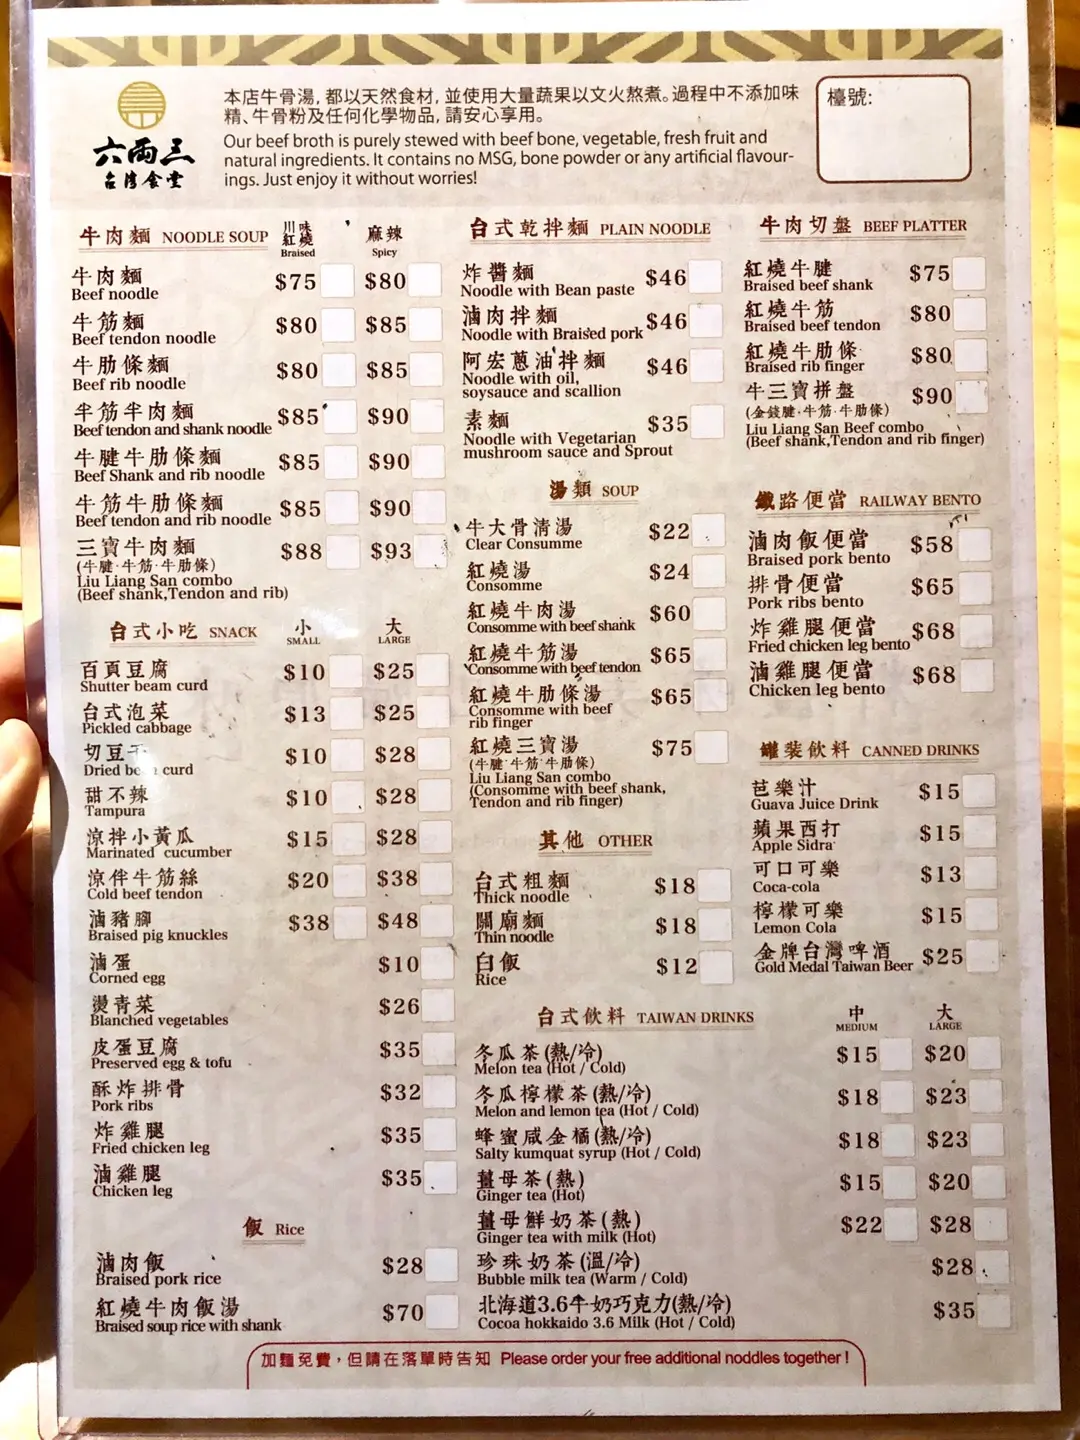 六兩三
台灣食堂
本店牛骨湯, 都以天然食材, 並使用大量蔬果以文火熬煮。過程中不添加味
精、牛骨粉及任何化學物品, 請安心享用。
Our beef broth is purely stewed with beef bone, vegetable, fresh fruit and
natural ingredients. It contains no MSG, bone powder or any artificial flavour-
ings. Just enjoy it without worries!
檯號:
牛肉麵 NOODLE SOUP 川味紅燒 Braised 麻辣 Spicy
牛肉麵 $75 $80
Beef noodle
牛筋麵 $80 $85
Beef tendon noodle
牛肋條麵 $80 $85
Beef rib noodle
半筋半肉麵 $85 $90
Beef tendon and shank noodle
牛腱牛肋條麵 $85 $90
Beef Shank and rib noodle
牛筋牛肋條麵 $85 $90
Beef tendon and rib noodle
三寶牛肉麵 $88 $93
(牛腱·牛筋·牛肋條)
Liu Liang San combo
(Beef shank,Tendon and rib)
台式小吃 SNACK 小 SMALL 大 LARGE
百頁豆腐 $10 $25
Shutter beam curd
台式泡菜 $13 $25
Pickled cabbage
切豆干 $10 $28
Dried curd
甜不辣 $10 $28
Tampura
涼拌小黃瓜 $15 $28
Marinated cucumber
涼伴牛筋絲 $20 $38
Cold beef tendon
滷豬腳 $38 $48
Braised pig knuckles
滷蛋 $10
Corned egg
燙青菜 $26
Blanched vegetables
皮蛋豆腐 $35
Preserved egg & tofu
酥炸排骨 $32
Pork ribs
炸雞腿 $35
Fried chicken leg
滷雞腿 $35
Chicken leg
飯 Rice
滷肉飯 $28
Braised pork rice
紅燒牛肉飯湯 $70
Braised soup rice with shank
台式乾拌麵 PLAIN NOODLE
炸醬麵 $46
Noodle with Bean paste
滷肉拌麵 $46
Noodle with Braised pork
阿宏蔥油拌麵 $46
Noodle with oil,
soysauce and scallion
素麵 $35
Noodle with Vegetarian
mushroom sauce and Sprout
湯類 SOUP
牛大骨清湯 $22
Clear Consumme
紅燒湯 $24
Consomme
紅燒牛肉湯 $60
Consomme with beef shank
紅燒牛筋湯 $65
Consomme with beef tendon
紅燒牛肋條湯 $65
Consomme with beef
rib finger
紅燒三寶湯 $75
(牛腱·牛筋·牛肋條)
Liu Liang San combo
(Consomme with beef shank,
Tendon and rib finger)
其他 OTHER
台式粗麵 $18
Thick noodle
關廟麵 $18
Thin noodle
白飯 $12
Rice
牛肉切盤 BEEF PLATTER
紅燒牛腱 $75
Braised beef shank
紅燒牛筋 $80
Braised beef tendon
紅燒牛肋條 $80
Braised rib finger
牛三寶拼盤 $90
(金錢腱·牛筋·牛肋條)
Liu Liang San Beef combo
(Beef shank,Tendon and rib finger)
鐵路便當 RAILWAY BENTO
滷肉飯便當 $58
Braised pork bento
排骨便當 $65
Pork ribs bento
炸雞腿便當 $68
Fried chicken leg bento
滷雞腿便當 $68
Chicken leg bento
罐裝飲料 CANNED DRINKS
芭樂汁 $15
Guava Juice Drink
蘋果西打 $15
Apple Sidra
可口可樂 $13
Coca-cola
檸檬可樂 $15
Lemon Cola
金牌台灣啤酒 $25
Gold Medal Taiwan Beer
台式飲料 TAIWAN DRINKS 中 MEDIUM 大 LARGE
冬瓜茶(熱/冷) $15 $20
Melon tea (Hot / Cold)
冬瓜檸檬茶(熱/冷) $18 $23
Melon and lemon tea (Hot / Cold)
蜂蜜咸金橘(熱/冷) $18 $23
Salty kumquat syrup (Hot / Cold)
薑母茶(熱) $15 $20
Ginger tea (Hot)
薑母鮮奶茶(熱) $22 $28
Ginger tea with milk (Hot)
珍珠奶茶(溫/冷) $28
Bubble milk tea (Warm / Cold)
北海道3.6牛奶巧克力(熱/冷) $35
Cocoa hokkaido 3.6 Milk (Hot / Cold)
加麵免費，但請在落單時告知 Please order your free additional noddles together !